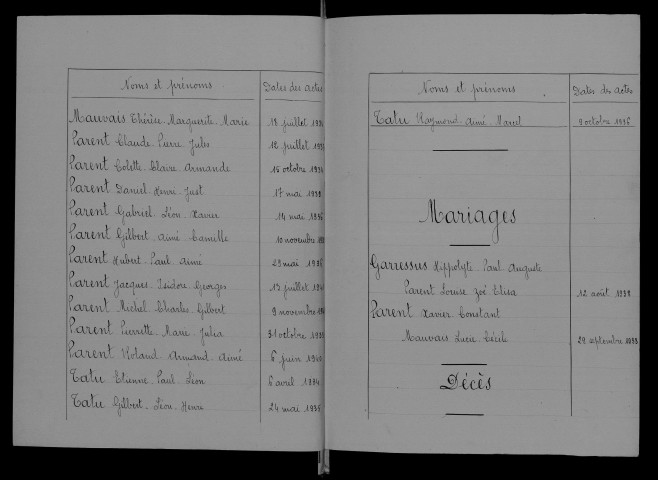 Noms et prénoms Dates des actes
Mauvais Thérèse Marguerite Marie 18 juillet
Parent Claude Pierre Jules 12 juillet
Parent Colette Claire Armande 15 octobre
Parent Daniel Henri Just 17 mai
Parent Gabriel Léon Xavier 14 mai
Parent Gilbert Aimé Camille 10 novembre
Parent Hubert Paul Aimé 29 mai 1936
Parent Jacques Isidore Georges 13 juillet
Parent Michel Charles Gilbert 9 novembre
Parent Pierrette Marie Julia 31 octobre
Parent Roland Armand Aimé 6 juin 1940
Tatu Etienne Paul Léon 6 avril 1934
Tatu Gilbert Léon Henri 24 mai 1935
Noms et prénoms Dates des actes
Tatu Raymond Aimé Marcel 9 octobre 1936
Mariages
Garressus Hippolyte Paul Auguste
Parent Louise Zoé Elisa 12 août
Parent Xavier Constant
Mauvais Lucie Cécile 29 septembre
Décès